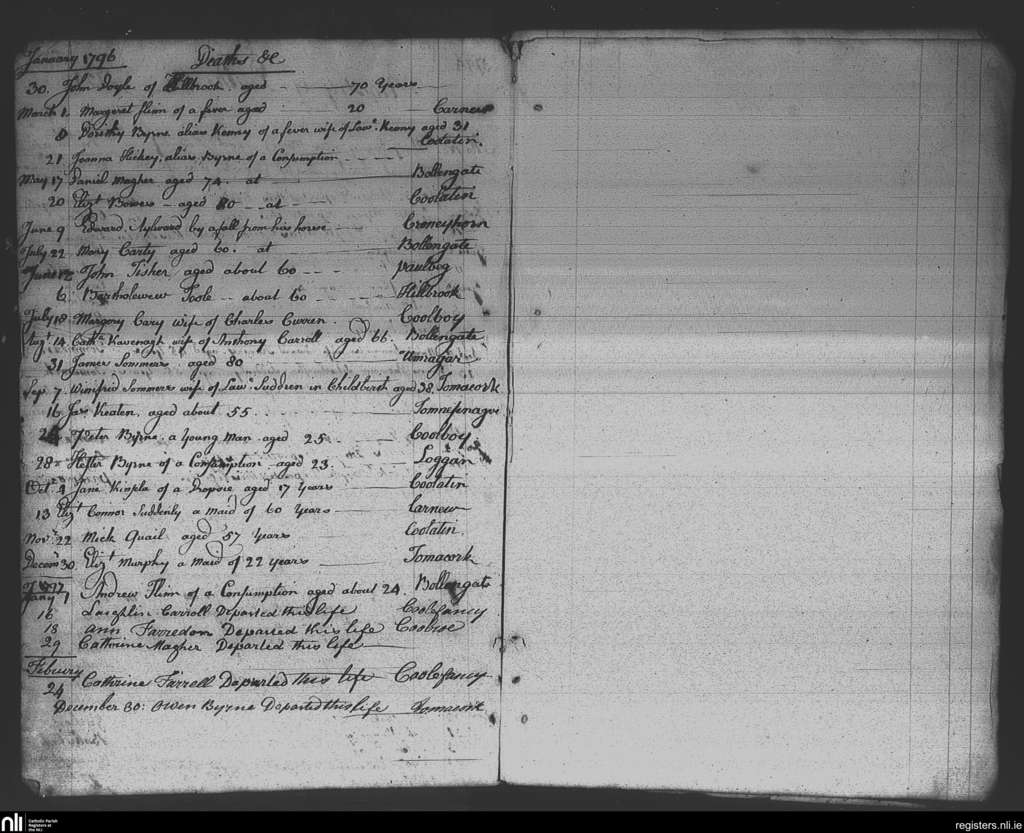 January 1796 Deaths &c
30. John Doyle of Hillbrook aged 70 Years
March 1 Margeret flinn of a fever aged 20 Carnew
9 Dorithy Byrne alias Kenny of a fever wife of Lawe. Kenny aged 31
Coolatin.
21 Joanna Hickey, alias Byrne of a Consumption
May 17 Daniel Magher aged 74. at Bollengate
20 Elizt Bowers aged 80 at Coolatin
June 9 Edward Aylward by a fall from his horse Croneyhorn
July 22 Mary Carty aged 60. at Bollengate
June John Fisher aged about 60 paulbog
6 Bartholewew Toole about 60 Hillbrook
July 18 Margory Cary wife of Charles Curren. Coolboy
Augt 14 Cathn Kavenagh wife of Anthony Carroll aged 66. Bollengate
31 James Sommers aged 80
Sep. 7. Winifred Sommers wife of Lawe Suddren in Childbirth aged 38. Tomacork
16 Jas Keaten. aged about 55 Tomnesinagu
Peter Byrne. a Young Man aged 25 Coolboy
28 Hester Byrne of a Consumption aged 23. Loggan
Oct. 4 Jane Kinsela of a Dropsie aged 17 Years Coolatin
13 Elizt Connor Suddenly a Maid of 60 Years Carnew
Novr 22 Mick Quail aged 57 Years Coolatin
Decemr 30 Elizt Murphy a Maid of 22 years Tomacork
1797
Jany 7 Andrew Flinn of a Consumption aged about 24. Bollengate
16 Laughlin Carroll Departed this life Coolefancy
18 Ann Farredom Departed this life Coolroe
29 Cathrine Magher Departed this life
Febuiry
24 Cathrine Farrell Departed this life Coolefancy
December 30: Owen Byrne Departed this life Tomacork
nli Catholic Parish Registers at the NLI
registers.nli.ie